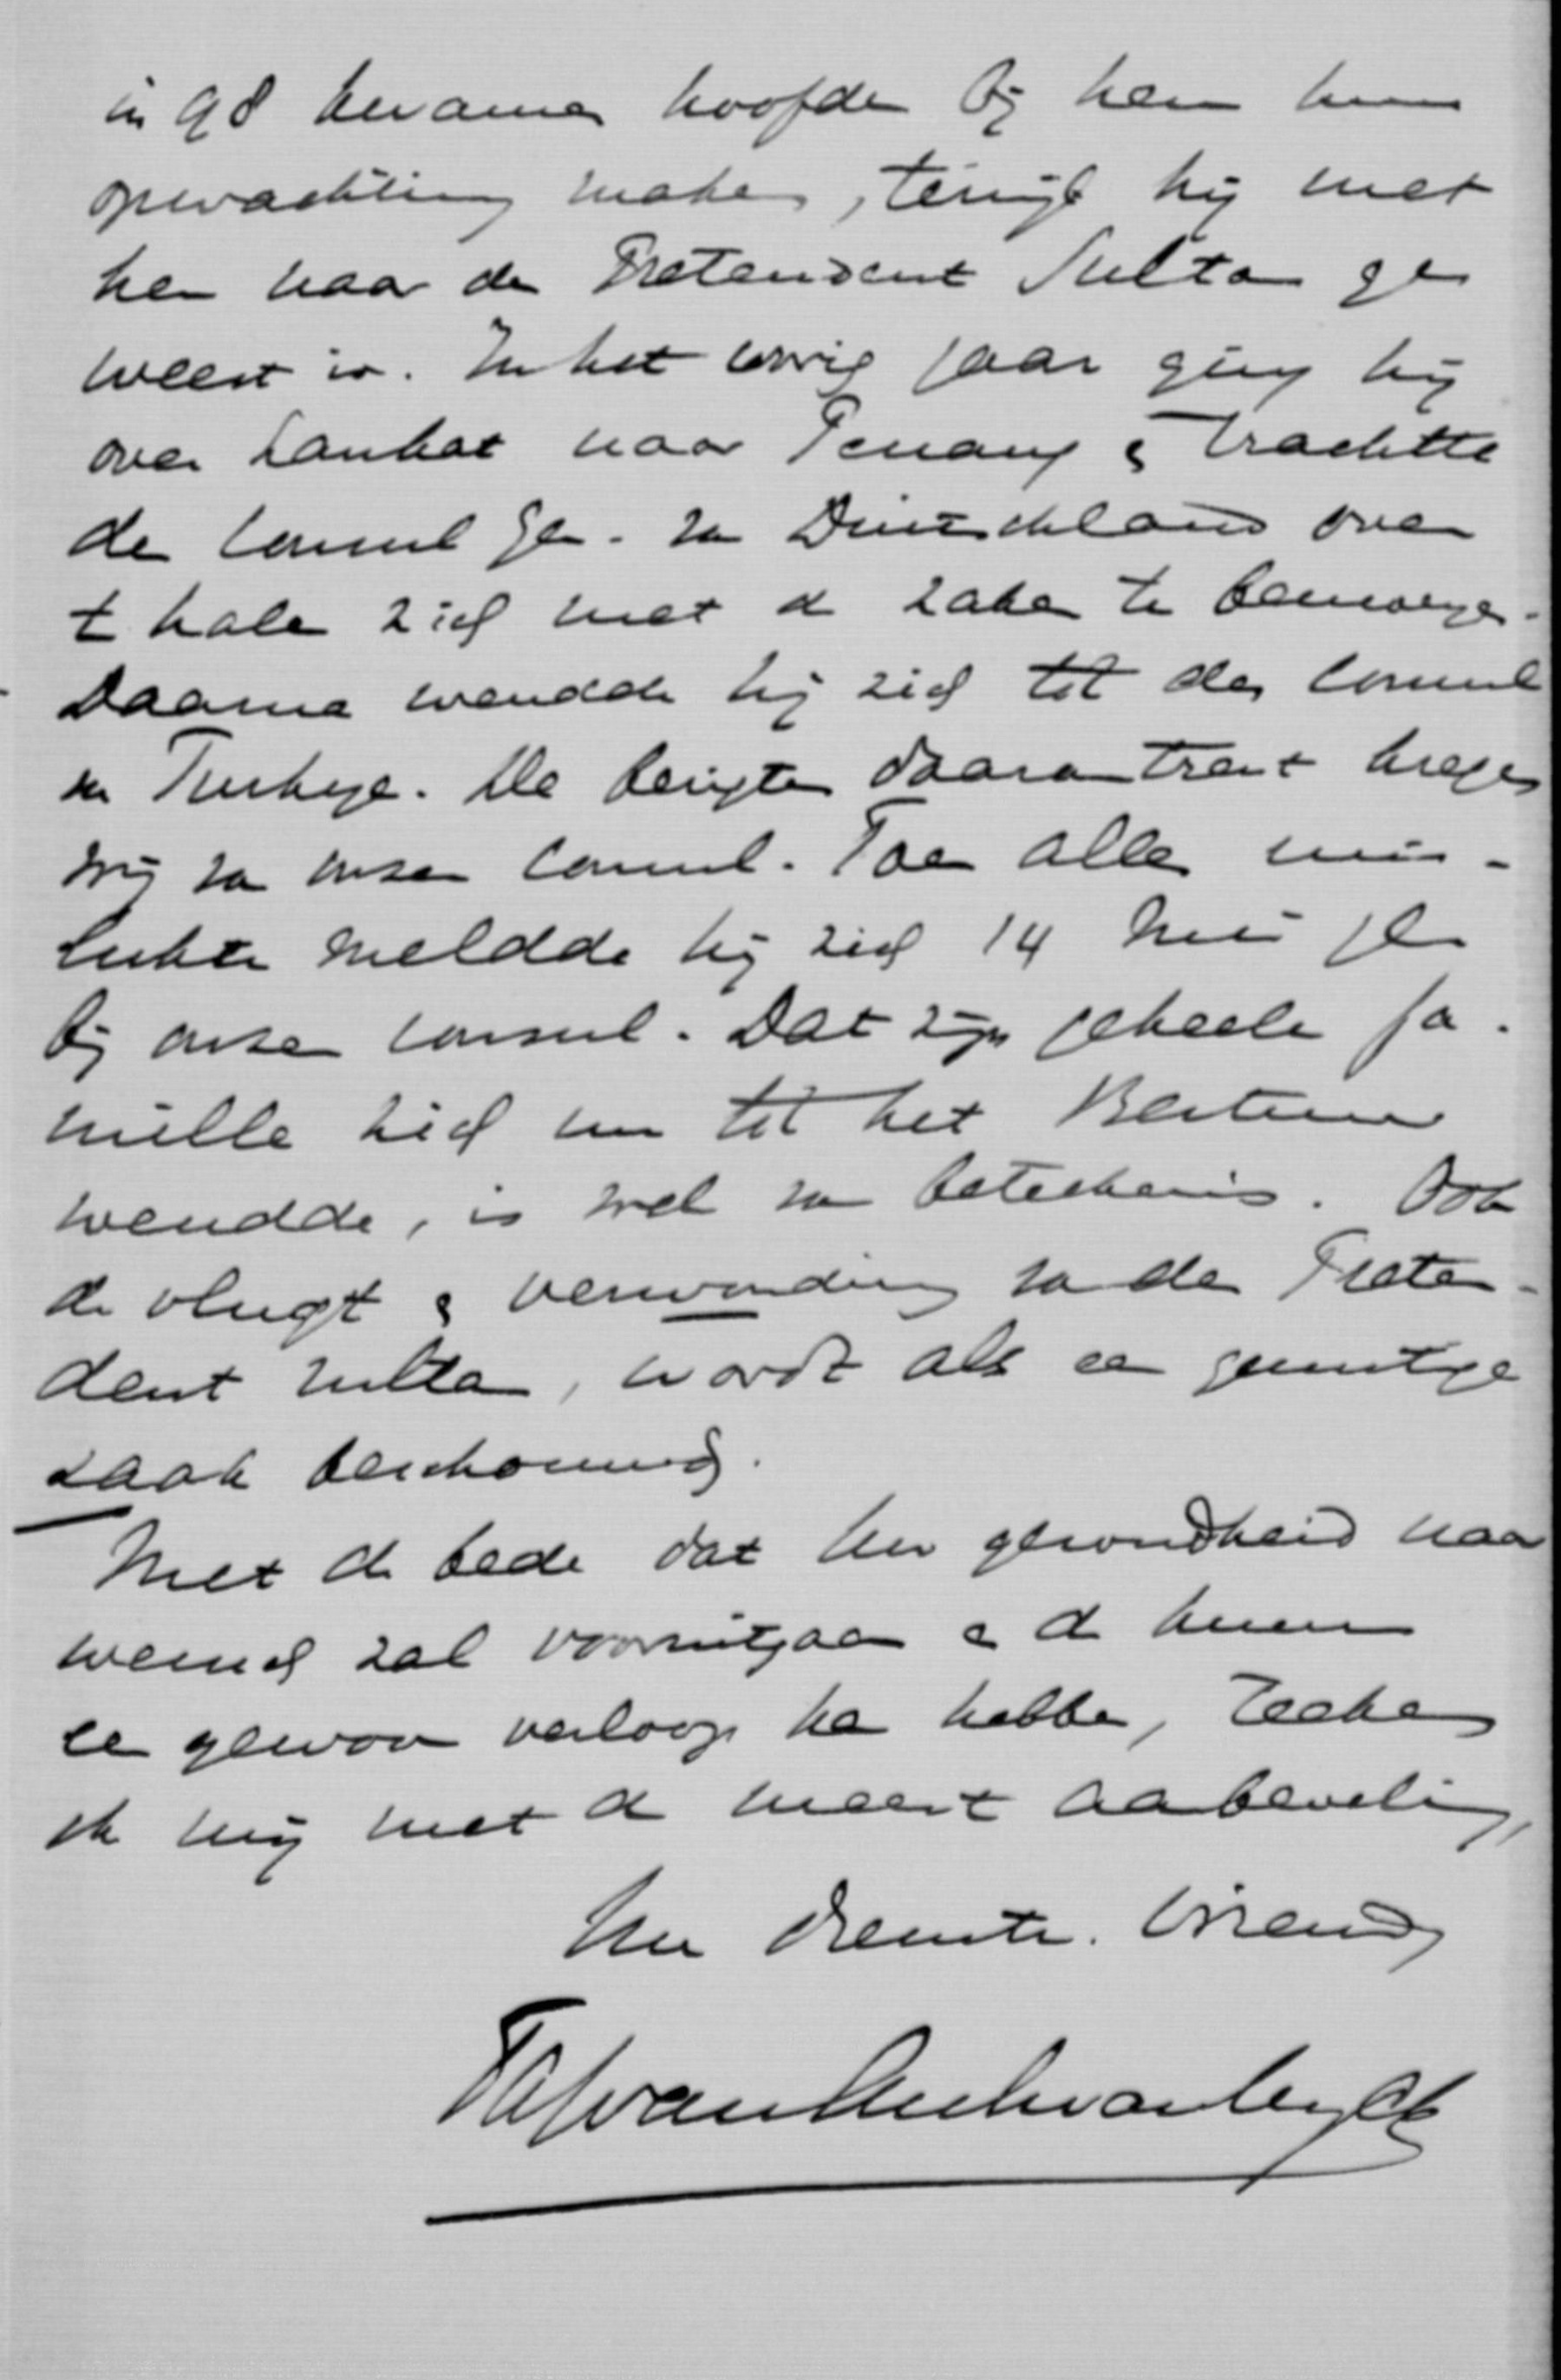 in 98 hoofden bij hem hun
opwachting maken, terwijl hij met
hen naar den Pretendent Sultan ge
weest is. In het vorig jaar ging hij
over Lankat naar Penang & trachtte
den Consul Gen. van Duitschland over
te halen zich met de zaken te bemoeyen.
Daarna wendde hij zich tot den Consul
van Turkye. De berigten daaromtrent kregen
wij van onzen Consul. Toen alles mis-
lukte meldde hij zich 14 Mei jl.
bij onzen consul. Dat zijn geheele fa-
mille zich nu tot het Bestuur
wendde, is wel van beteekenis. Ook
de vlugt & verwonding van den Preten-
dent Sultan, wordt als een gunstige
zaak beschouwd.
Met de bede dat Uw gezondheid naar
wensch zal vooruitgaan en de
een gewoon verloop hebben, teeken
ik mij met de meest aanbeveling,
Uw dienstw. Vriend